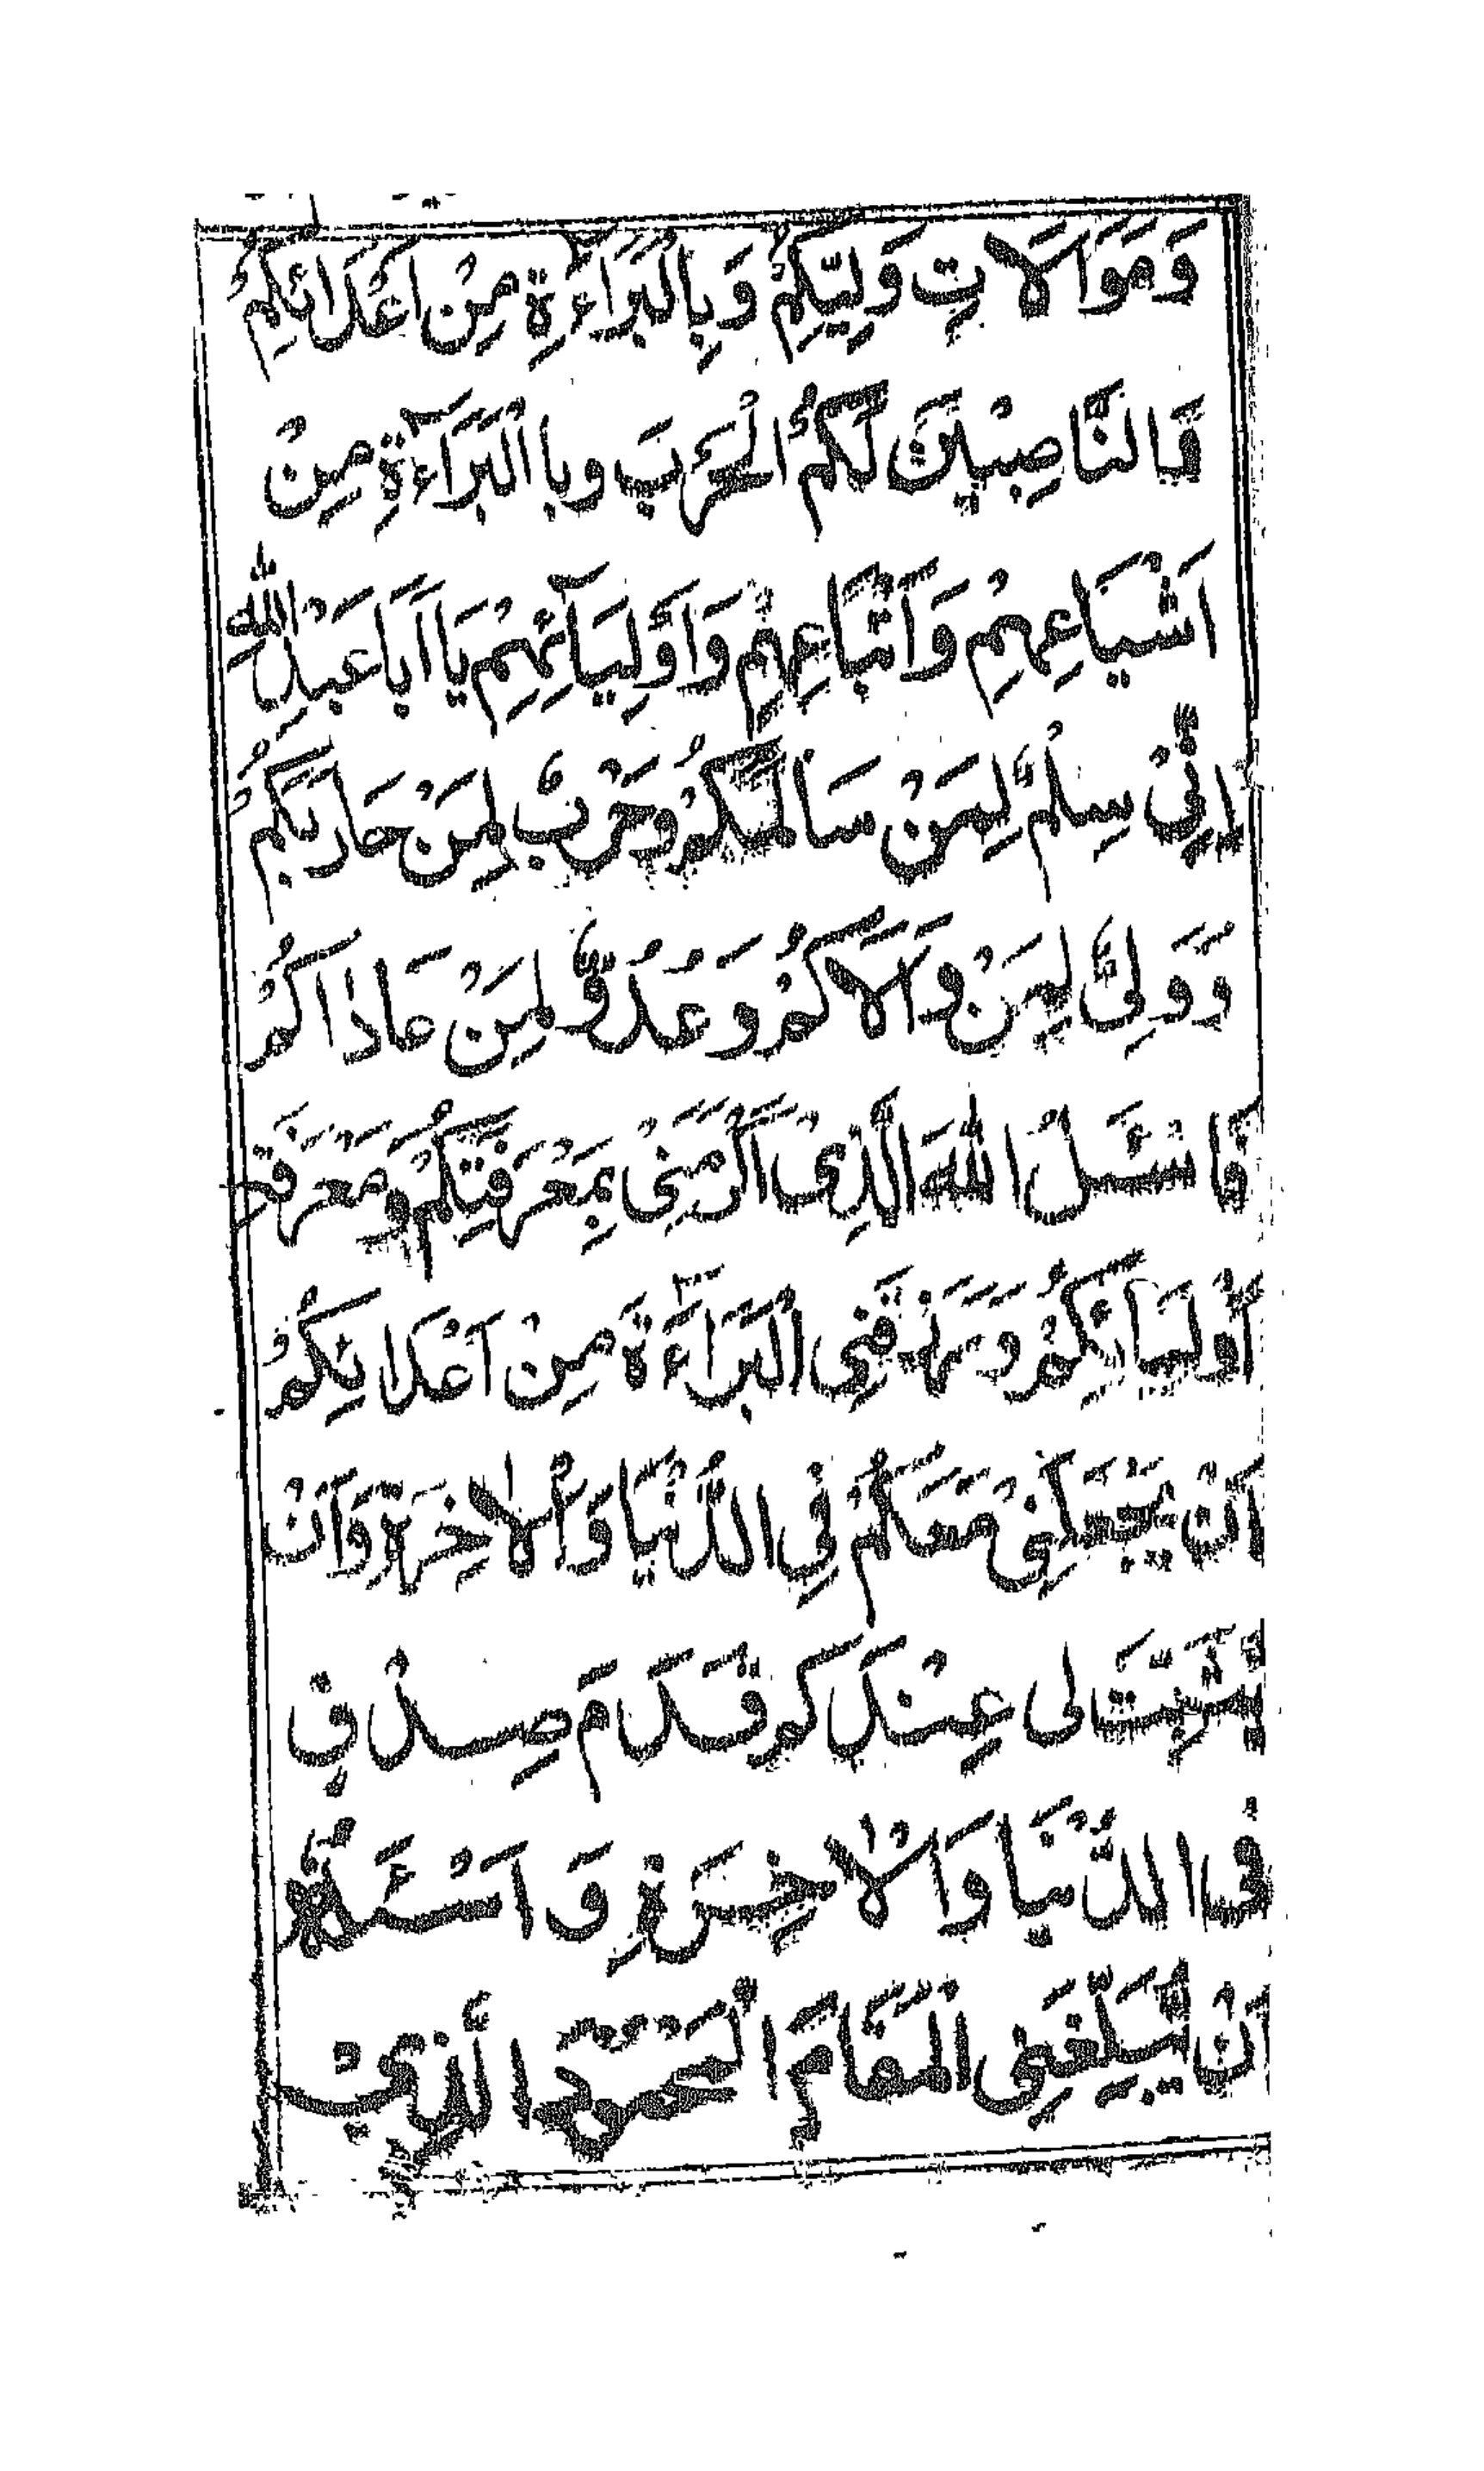 وَمَوَالَاتِ وَلِيِّكُمْ وَبِالْبَرَاءَةِ مِنْ اَعْدَائِكُمْ
وَالنَّاصِبِيْنَ لَكُمُ الْحَرْبَ وبا الْبَرَآءَةِ مِنْ
اَشْيَاعِهِمْ وَاَتْبَاعِهِمْ وَاَوْلِيَآئِهِمْ يَا اَبَا عَبْدِ اللّٰهِ
اِنِّيْ سِلْمٌ لِمَنْ سَالَمَكُمْ وَحَرْبٌ لِمَنْ حَارَبَكُمْ
وَوَلِيٌّ لِمَنْ وَالَاكُمْ وَعَدُوٌّ لِمَنْ عَادَاكُمْ
فَاسْئَلُ اللهَ الَّذِىْ اَكْرَمَنِىْ بِمَعْرَفَتِكُمْ وَمَعْرَفَةِ
اَوْلِيَائِكُمْ وَرَزَقَنِى الْبَرَآءَةَ مِنْ اَعْدَائِكُمْ
اَنْ يَجْعَلَنِىْ مَعَكُمْ فِى الدُّنْيَا وَالْاٰخِرَةِ وَاَنْ
يُثَبِّتَ لى عِنْدَكُمْ قَدَمَ صِدْقٍ
فِى الدُّنْيَا وَالْاٰخِرَةِ وَ اَسْئَلُهُ
اَنْ يُبَلِّغَنِى الْمَقَامَ الْمَحْمُوْدَ الَّذِىْ